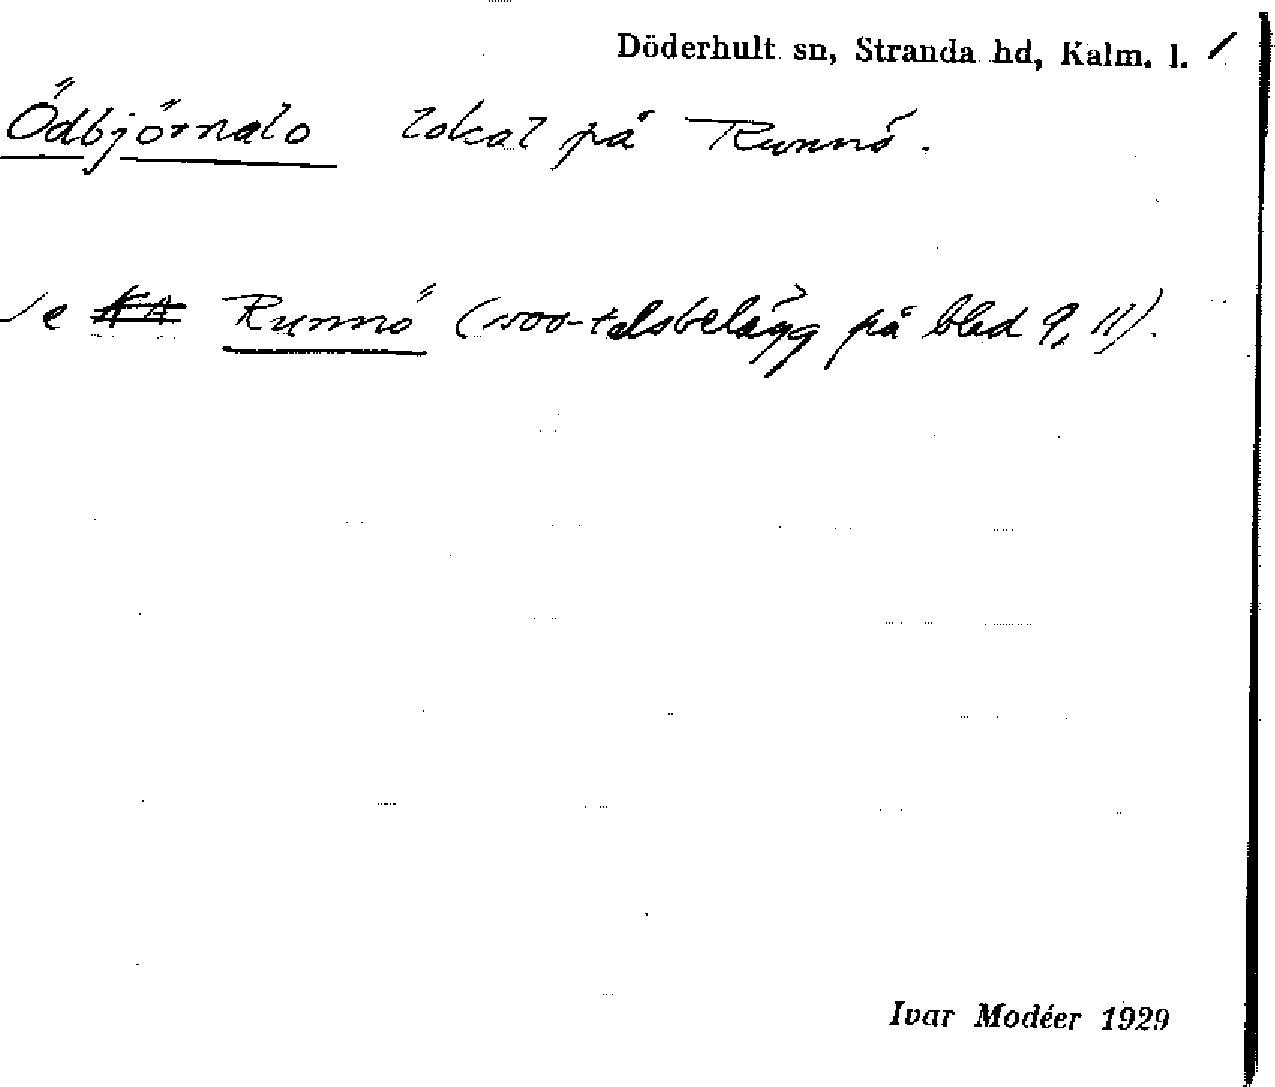 Döderhult sn, Stranda hd, Kalm. l.
Ödbjörnalo lokal på Runnö.
Se Runnö (1500-talsbelägg på blad 9, 11).
Ivar Modéer 1929